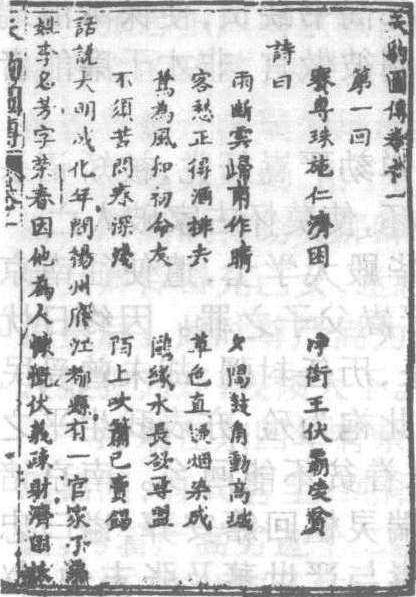 天豹圖傳卷之一
第一回
賽專珠施仁濟困　淨街王伏霸凌貧
詩曰
雨斷雲歸甫作晴　夕陽鼓角動高城
客愁正得酒排去　草色直疑烟染成
鶯為風和初命友　鷗緣水長欲尋盟
不須苦問春深淺　陌上吹簫已賣餳
話說大明成化年間揚州府江都縣有一官家子弟
姓李名芳字榮春因他為人慷慨伏義疎財濟困扶
天豹圖傳 卷一